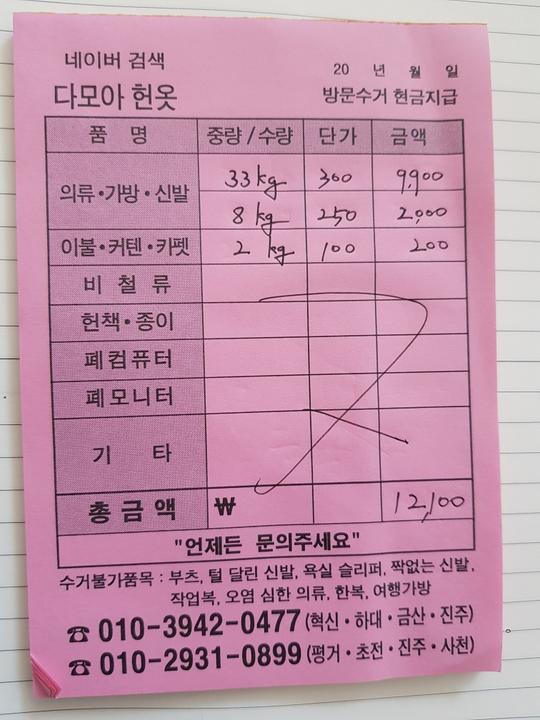 네이버 검색
20 년 월 일
다모아 헌옷 방문수거 현금지급
품 명 중량/수량 단가 금액
의류·가방·신발 33kg 300 9,900
8kg 250 2,000
이불·커텐·카펫 2 kg 100 200
비 철 류
헌책·종이
폐컴퓨터
폐모니터
기 타
총금액 ₩ 12,100
"언제든 문의주세요"
수거불가품목 : 부츠, 털 달린 신발, 욕실 슬리퍼, 짝없는 신발,
작업복, 오염 심한 의류, 한복, 여행가방
☎ 010-3942-0477 (혁신·하대·금산·진주)
☎ 010-2931-0899 (평거·초전·진주·사천)